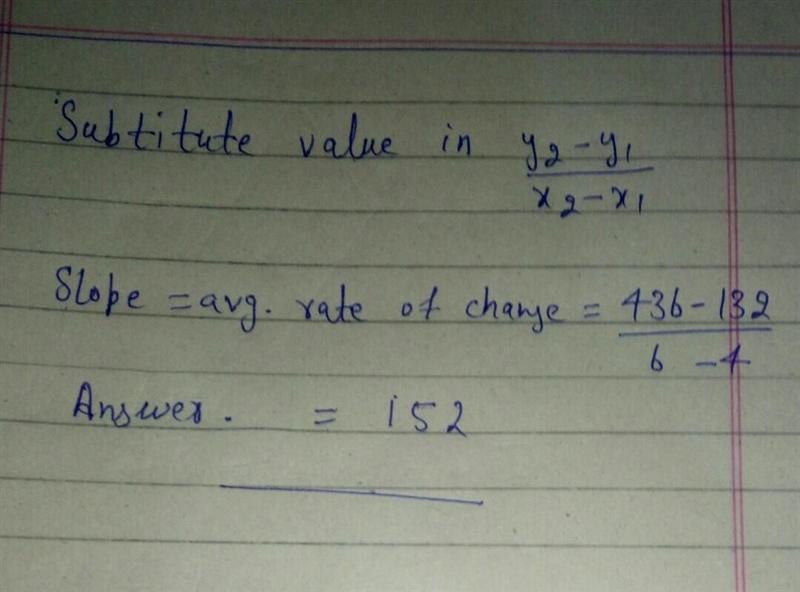 Subtitute value in y2-y1/x2-x1
Slope = avg. rate of change = 436-132/6-4
Answer. = 152